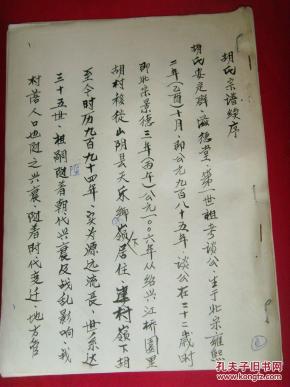 胡氏宗谱续序
胡氏安定群、滋德堂、第一世祖考谈公、生于北宋雍熙
二年(乙酉)十月、即公元九百八十五年、谈公在二十二岁时
即北宋景德三年(丙午)公元一00六年从绍兴江桥園里
胡村移徙山阴县天乐鄉嶺下居住、嶺下胡
至今时历九百九十四年、实为源远流長、世系达
三十五世、祖嗣随着朝代兴衰及战乱影响、我
村落人口也随之兴衰、随着时代变迁、地方管